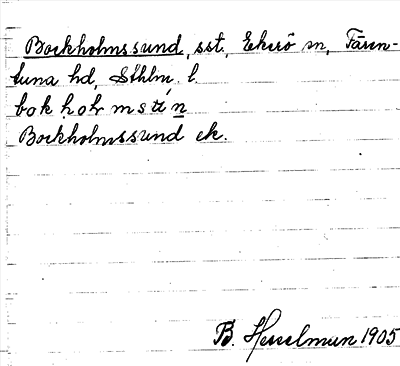 Bockholmssund, sst., Ekerö sn, Fären-
tuna hd, Sthlm. l.
Bockholmssund ek.
B. Hesselman 1905